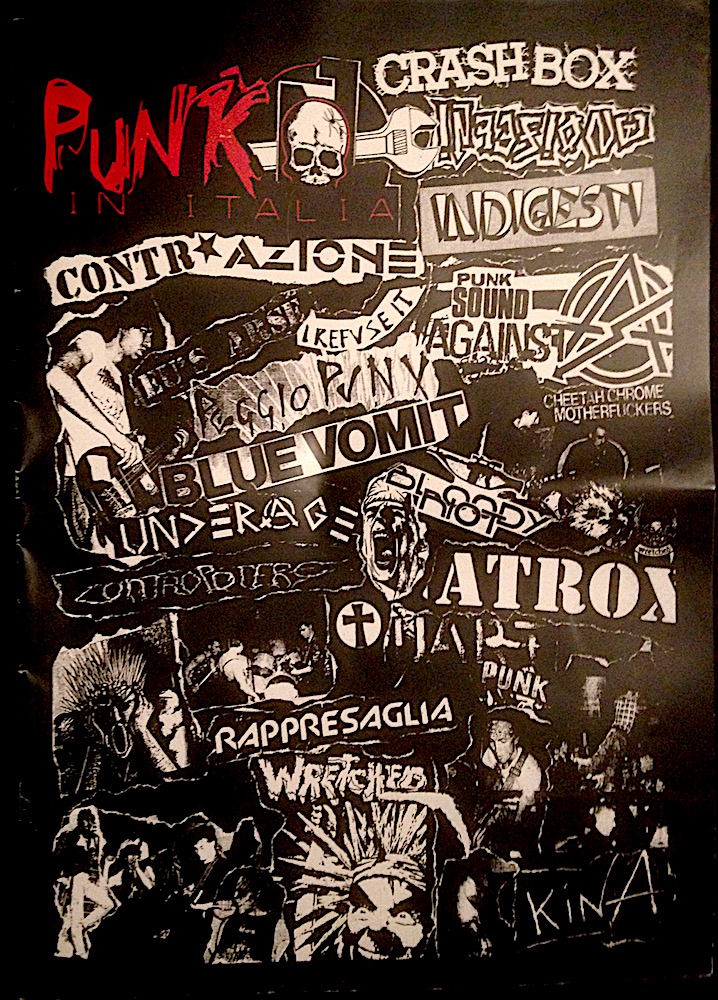 CRASH BOX
PUNK
IN ITALIA
INDIGESTI
CONTR★AZIONE
PUNK
SOUND
AGAINST
I REFUSE IT
PEGGIO PUNX
CHEETAH CHROME
MOTHERFUCKERS
BLUE VOMIT
BLOODY
RIOT
UNDERAGE
CONTROPOTERE
ATROX
PUNK
RAPPRESAGLIA
WRETCHED
KINA